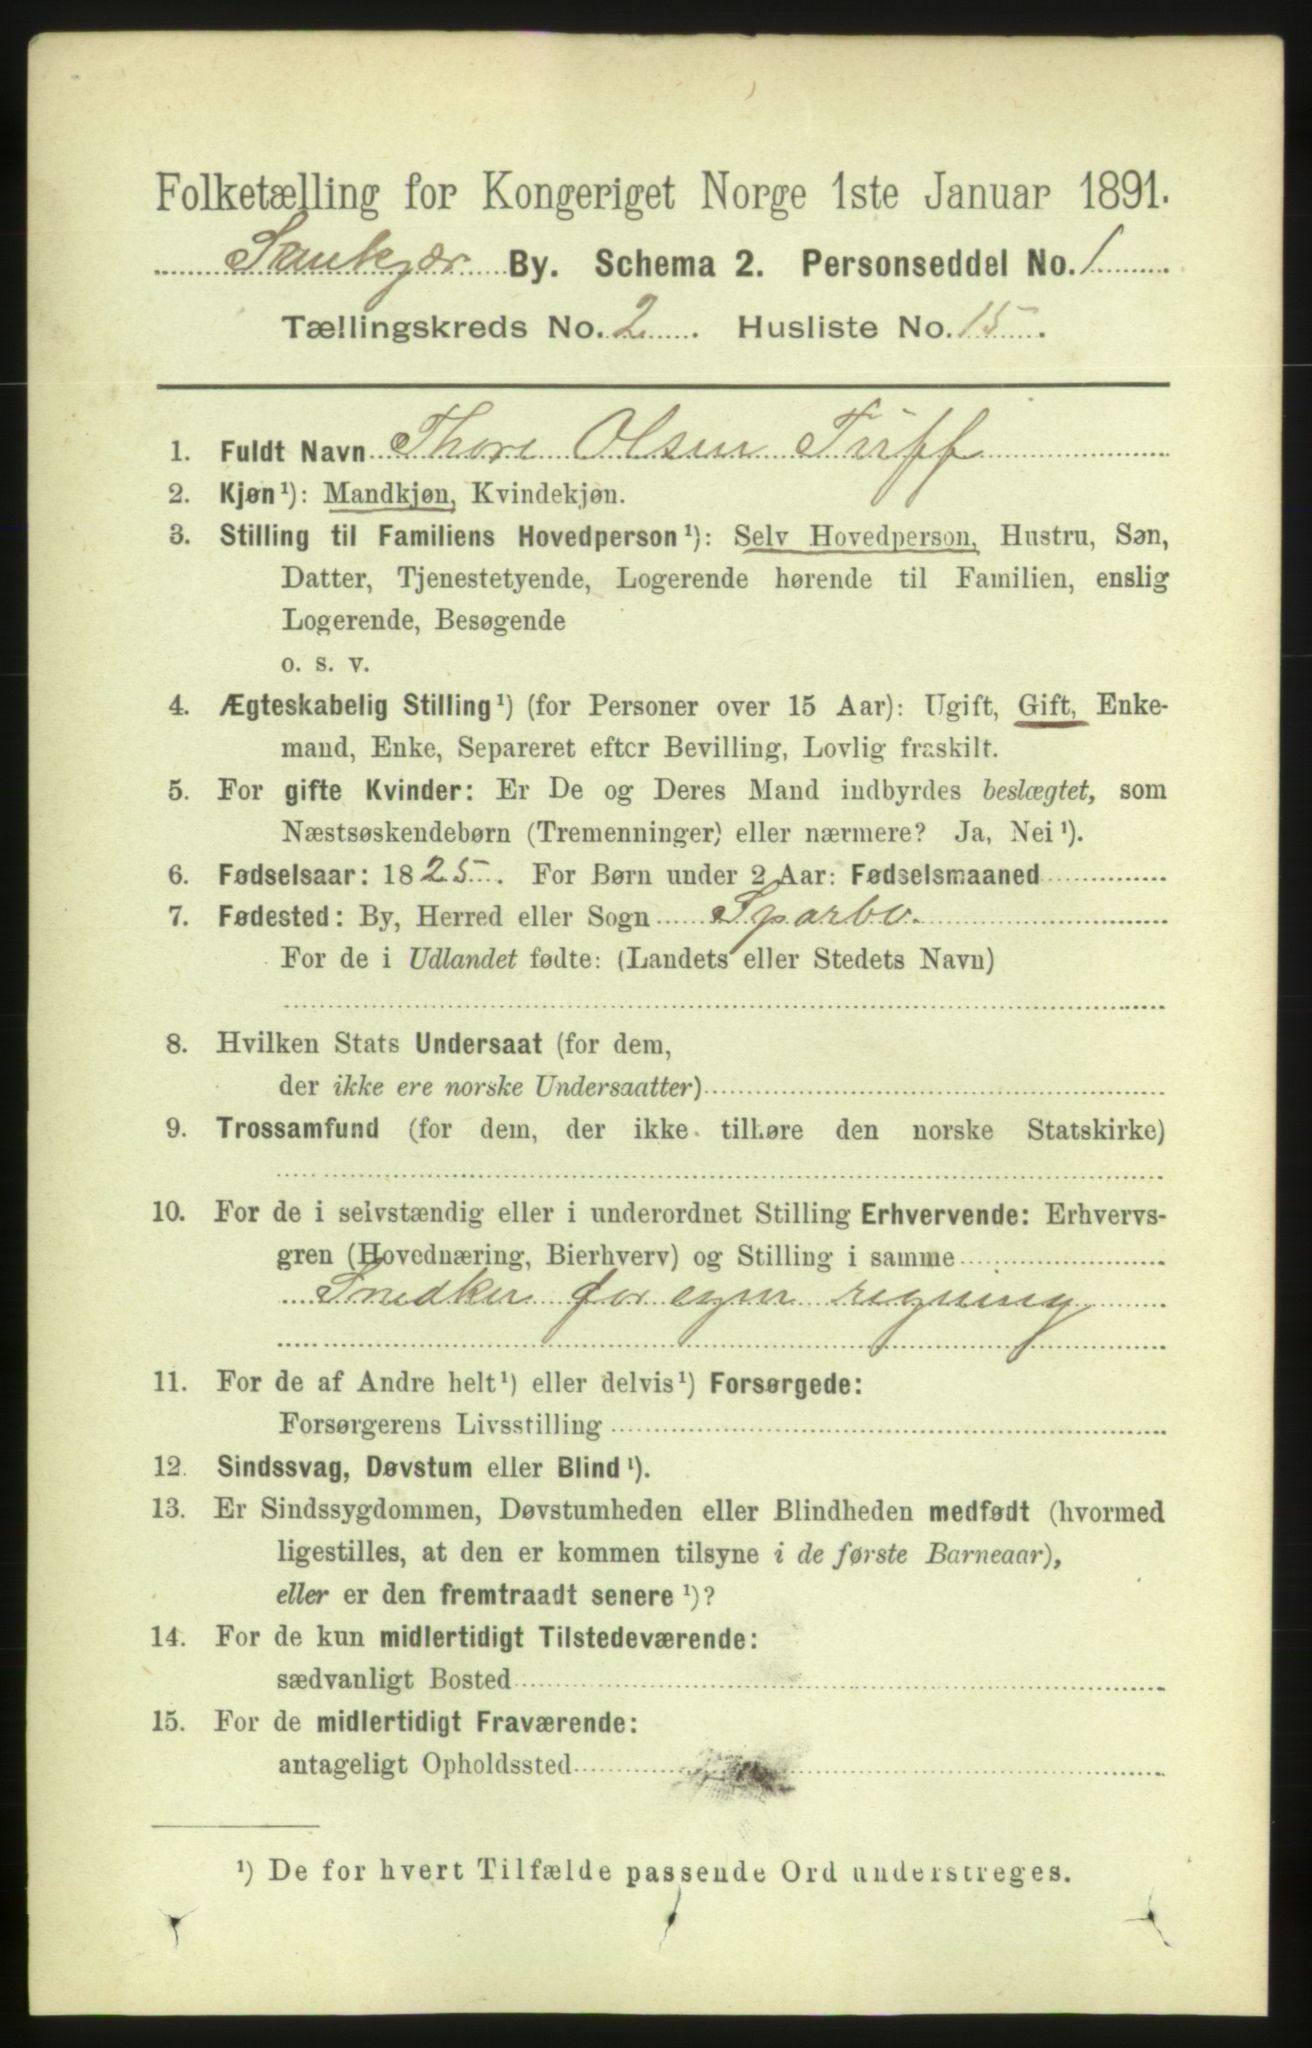 Folketælling for Kongeriget Norge 1ste Januar 1891.
Stenkjær By. Schema 2. Personseddel No. 1
Tællingskreds No. 2. Husliste No. 15.
1. Fuldt Navn Thore Olsen Tuff
2. Kjøn¹): Mandkjøn, Kvindekjøn.
3. Stilling til Familiens Hovedperson¹): Selv Hovedperson, Hustru, Søn,
Datter, Tjenestetyende, Logerende hørende til Familien, enslig
Logerende, Besøgende
o. s. v.
4. Ægteskabelig Stilling¹) (for Personer over 15 Aar): Ugift, Gift, Enke-
mand, Enke, Separeret efter Bevilling, Lovlig fraskilt.
5. For gifte Kvinder: Er De og Deres Mand indbyrdes beslægtet, som
Næstsøskendebørn (Tremenninger) eller nærmere? Ja, Nei¹).
6. Fødselsaar: 1825. For Børn under 2 Aar: Fødselsmaaned
7. Fødested: By, Herred eller Sogn Sparbo.
For de i Udlandet fødte: (Landets eller Stedets Navn)
8. Hvilken Stats Undersaat (for dem,
der ikke ere norske Undersaatter)
9. Trossamfund (for dem, der ikke tilhøre den norske Statskirke)
10. For de i selvstændig eller i underordnet Stilling Erhvervende: Erhvervs-
gren (Hovednæring, Bierhverv) og Stilling i samme
Snedker for egen regning
11. For de af Andre helt¹) eller delvis¹) Forsørgede:
Forsørgerens Livsstilling
12. Sindssvag, Døvstum eller Blind¹).
13. Er Sindssygdommen, Døvstumheden eller Blindheden medfødt (hvormed
ligestilles, at den er kommen tilsyne i de første Barneaar),
eller er den fremtraadt senere¹)?
14. For de kun midlertidigt Tilstedeværende:
sædvanligt Bosted
15. For de midlertidigt Fraværende:
antageligt Opholdssted
¹) De for hvert Tilfælde passende Ord understreges.